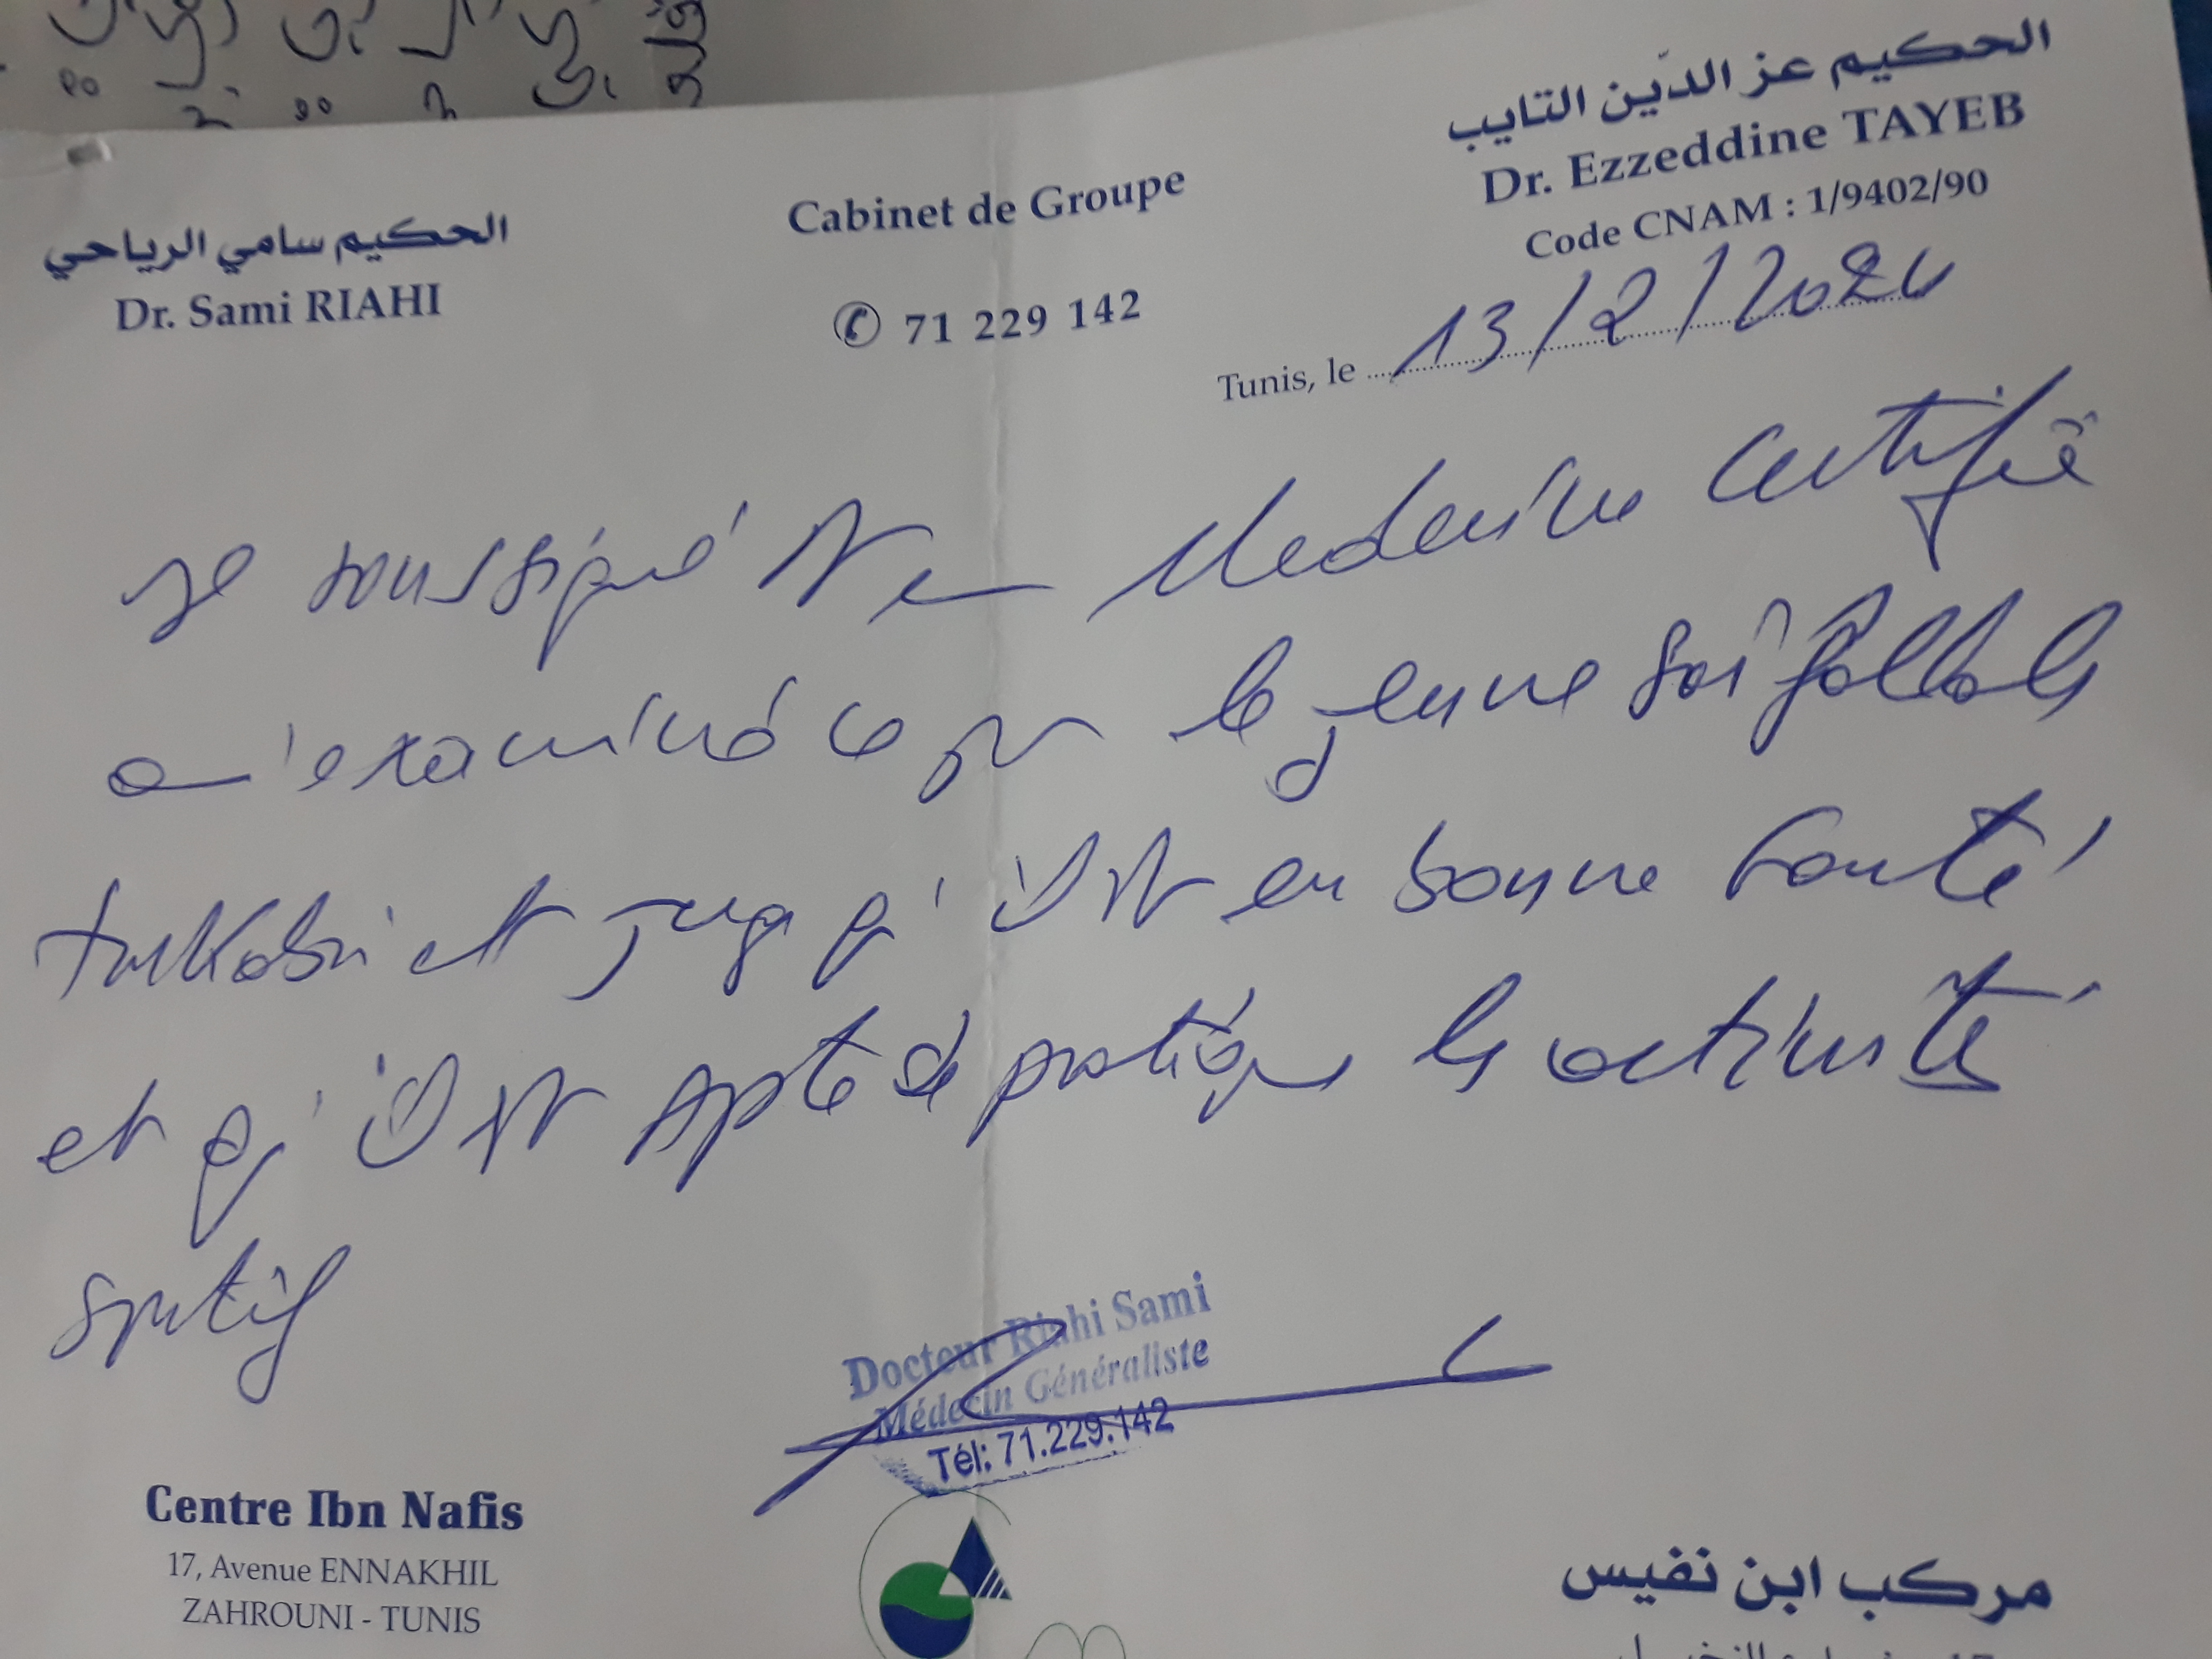 الحكيم عز الدّين التايب
Dr. Ezzeddine TAYEB
Code CNAM : 1/9402/90
الحكيم سامي الرياحي
Dr. Sami RIAHI
Cabinet de Groupe
✆ 71 229 142
Tunis, le 13/2/2024
Je soussigné Dr en Medecine certifie
examiné ce jour le jeune
et juge qu'il est en bonne santé
et qu'il est apte de pratiquer les activités
sportif
Docteur Riahi Sami
Médecin Généraliste
Tél: 71.229.142
Centre Ibn Nafis
17, Avenue ENNAKHIL
ZAHROUNI - TUNIS
مركب ابن نفيس